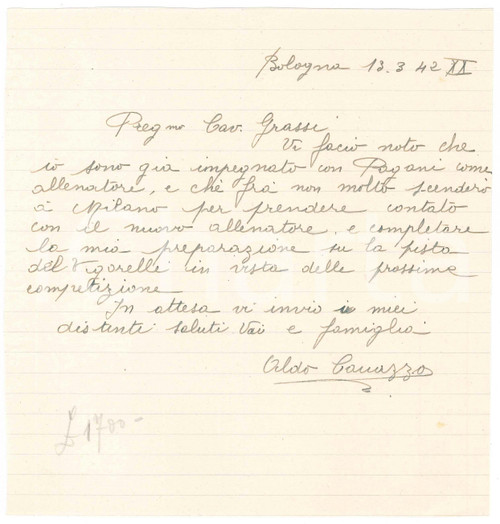 Bologna 13.3 42 XX
Pregmo Cav. Grassi
Vi facio noto che
io sono già impegnato con Pagani come
allenatore, e che frà non molto scenderò
à Milano per prendere contato
con il nuovo allenatore, e completare
la mia preparazione su la pista
del Vigorelli in vista delle prossime
competizione
In attesa vi invio i miei
distenti saluti Voi e famiglia
Aldo Cavazza
£ 1700-